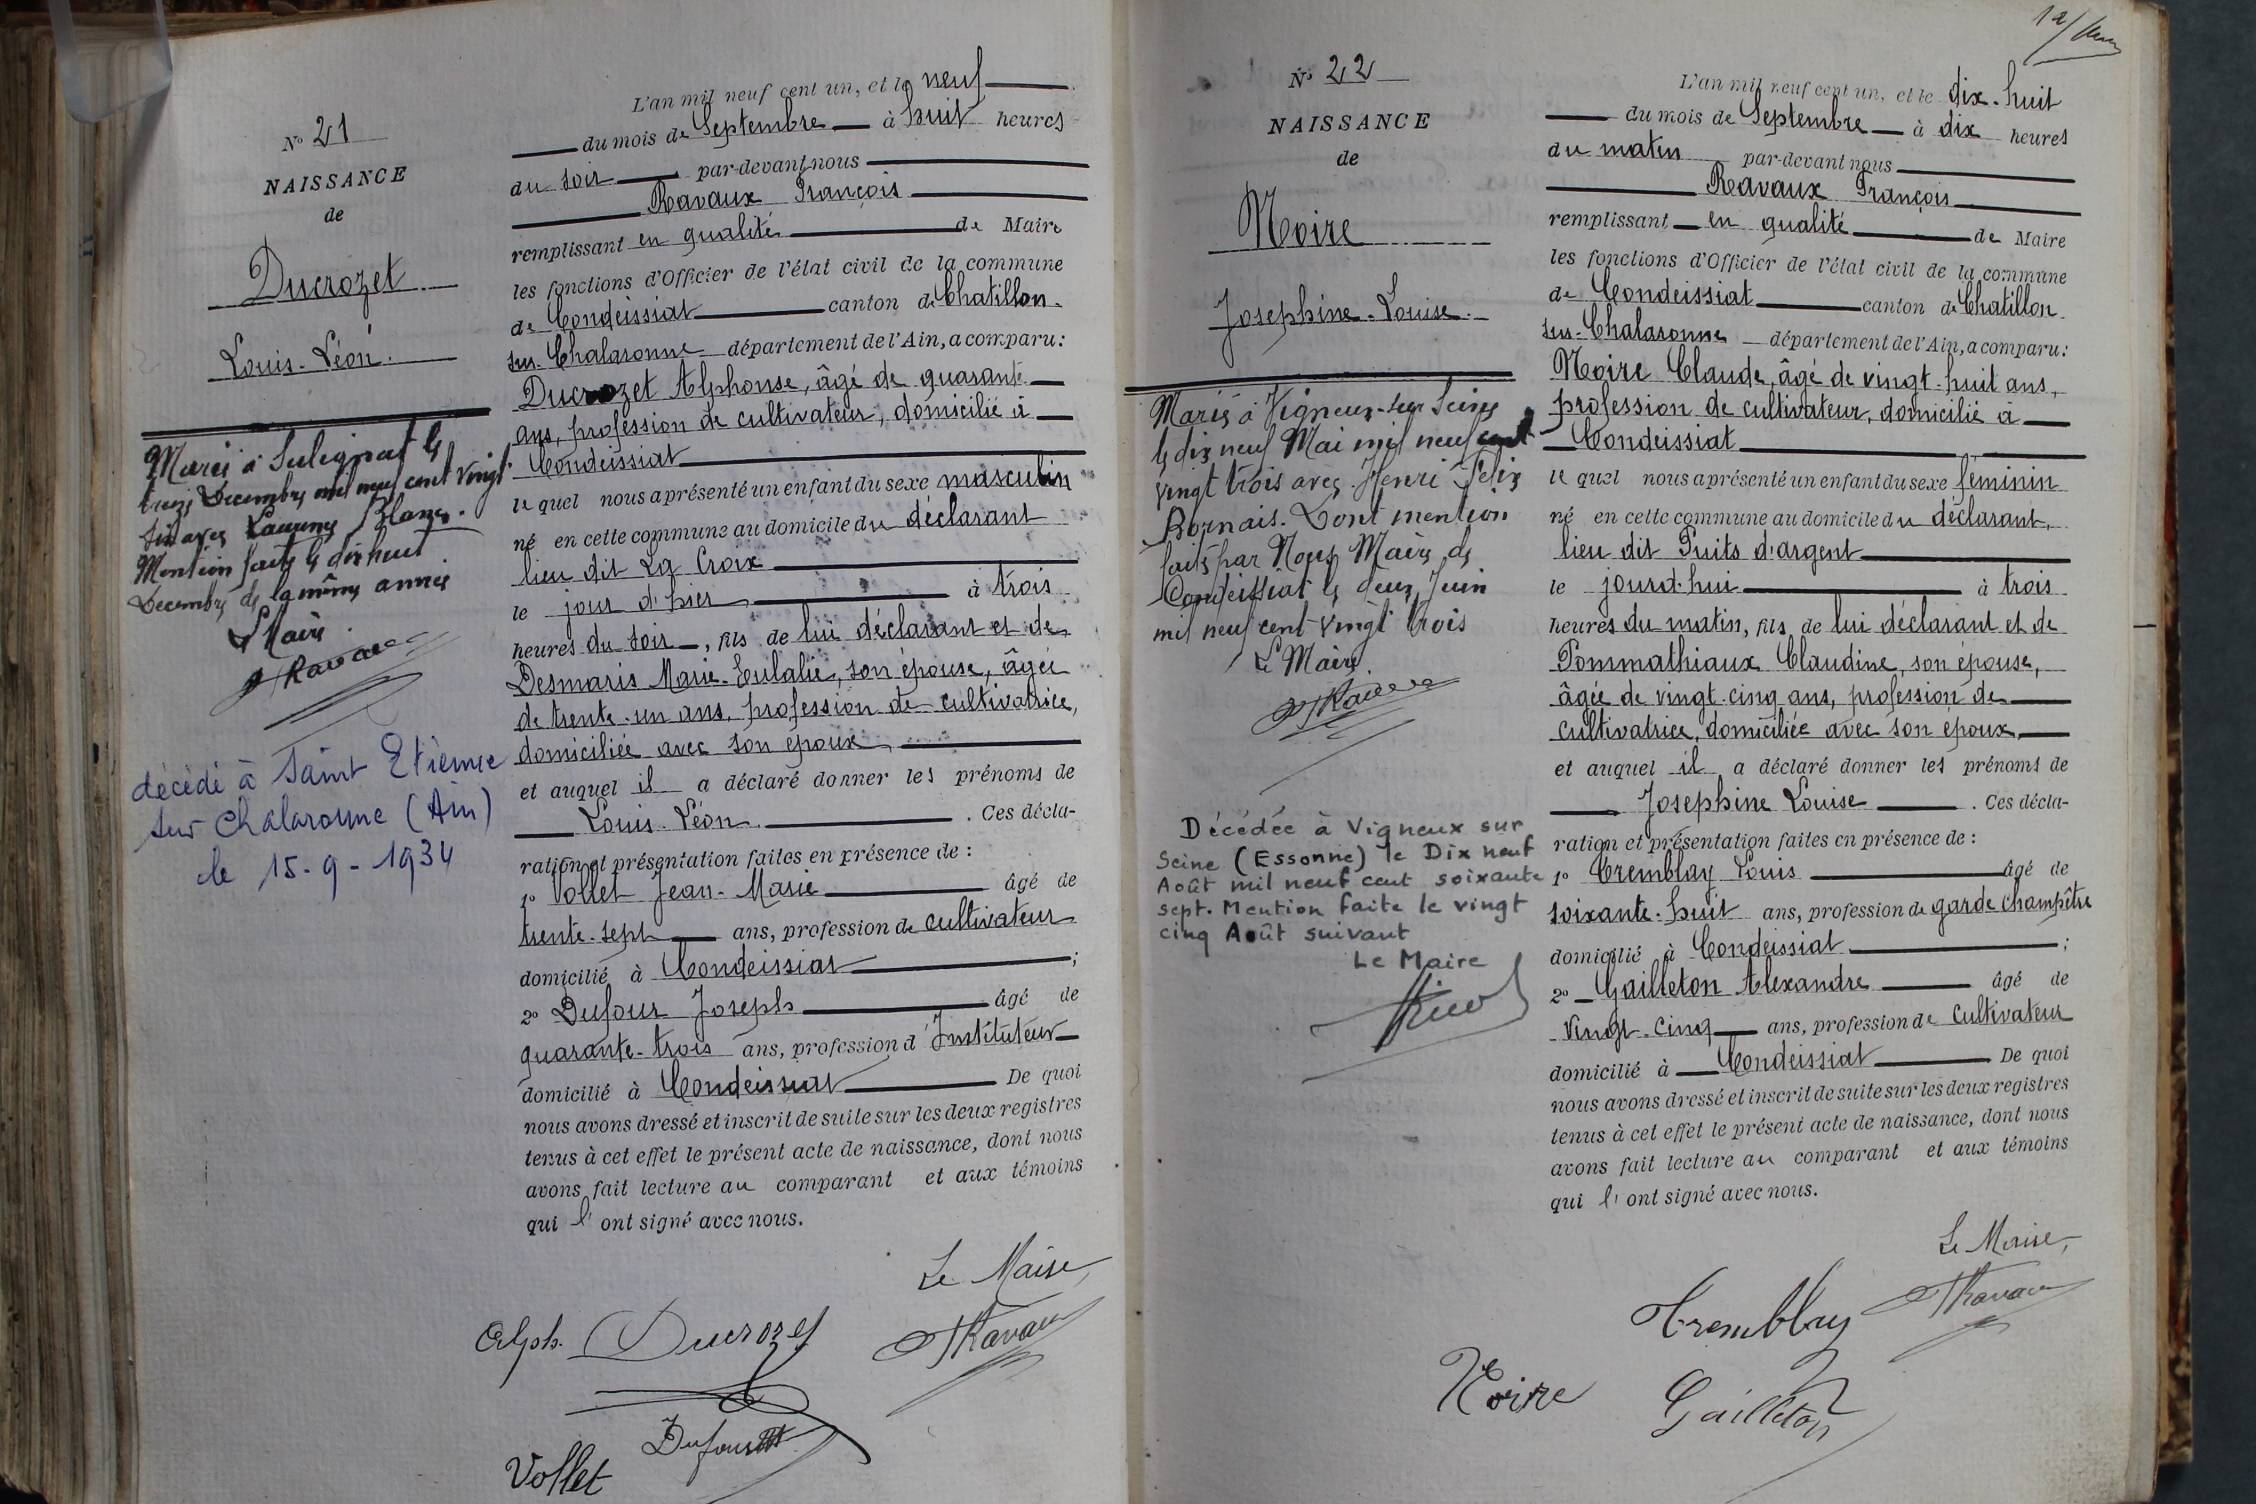 N° 21
NAISSANCE
de
Ducrozet
Louis-Léon
Marié à Sulignat le
treize Decembre mil neuf cent vingt
six avec Laurence Blanc.
Mention faite le dix huit
Decembre de la même année
Le Maire
F Ravaux
décédé à Saint Etienne
sur Chalaronne (Ain)
le 15-9-1934
L'an mil neuf cent un, et le neuf
du mois de Septembre à huit heures
du soir par-devant nous
Ravaux François
remplissant en qualité de Maire
les fonctions d'Officier de l'état civil de la commune
de Condeissiat canton de Chatillon-
sur-Chalaronne département de l'Ain, a comparu :
Ducrozet Alphonse, âgé de quarante
ans, profession de cultivateur, domicilié à
Condeissiat
le quel nous a présenté un enfant du sexe masculin
né en cette commune au domicile du déclarant
lieu dit La Croix
le jour d'hier à trois
heures du soir, fils de lui déclarant et de
Desmaris Marie-Eulalie, son épouse, âgée
de trente-un ans, profession de cultivatrice,
domiciliée avec son époux,
et auquel il a déclaré donner les prénoms de
Louis-Léon. Ces décla-
ration et présentation faites en présence de :
1° Vollet Jean-Marie âgé de
trente-sept ans, profession de cultivateur
domicilié à Condeissiat ;
2° Dufour Joseph âgé de
quarante-trois ans, profession d'Instituteur
domicilié à Condeissiat De quoi
nous avons dressé et inscrit de suite sur les deux registres
tenus à cet effet le présent acte de naissance, dont nous
avons fait lecture au comparant et aux témoins
qui l'ont signé avec nous.
Le Maire,
Alph. Ducrozet
F Ravaux
Dufour
Vollet
12/
N° 22
NAISSANCE
de
Noire
Josephine-Louise.
Mariée à Vigneux-sur Seine
le dix neuf Mai mil neuf cent
vingt trois avec Henri Felix
Bornais. Dont mention
faite par Nous Maire de
Condeissiat le deux Juin
mil neuf cent vingt trois
Le Maire.
F Ravaux
Décédée à Vigneux sur
Seine (Essonne) le Dix neuf
Août mil neuf cent soixante
sept. Mention faite le vingt
cinq Août suivant
Le Maire
L'an mil neuf cent un, et le dix-huit
du mois de Septembre à dix heures
du matin par-devant nous
Ravaux François
remplissant en qualité de Maire
les fonctions d'Officier de l'état civil de la commune
de Condeissiat canton de Chatillon-
sur-Chalaronne département de l'Ain, a comparu :
Noire Claude, âgé de vingt-huit ans,
profession de cultivateur, domicilié à
Condeissiat
le quel nous a présenté un enfant du sexe féminin
né en cette commune au domicile du déclarant,
lieu dit Puits d'argent
le jourd'hui à trois
heures du matin, fils de lui déclarant et de
Pommathiaux Claudine, son épouse,
âgée de vingt-cinq ans, profession de
cultivatrice, domiciliée avec son époux,
et auquel il a déclaré donner les prénoms de
Josephine Louise. Ces décla-
ration et présentation faites en présence de :
1° Tremblay Louis âgé de
soixante-huit ans, profession de garde champêtre
domicilié à Condeissiat ;
2° Gailleton Alexandre âgé de
vingt-cinq ans, profession de cultivateur
domicilié à Condeissiat De quoi
nous avons dressé et inscrit de suite sur les deux registres
tenus à cet effet le présent acte de naissance, dont nous
avons fait lecture au comparant et aux témoins
qui l'ont signé avec nous.
Le Maire,
Tremblay
F Ravaux
Noire
Gailleton